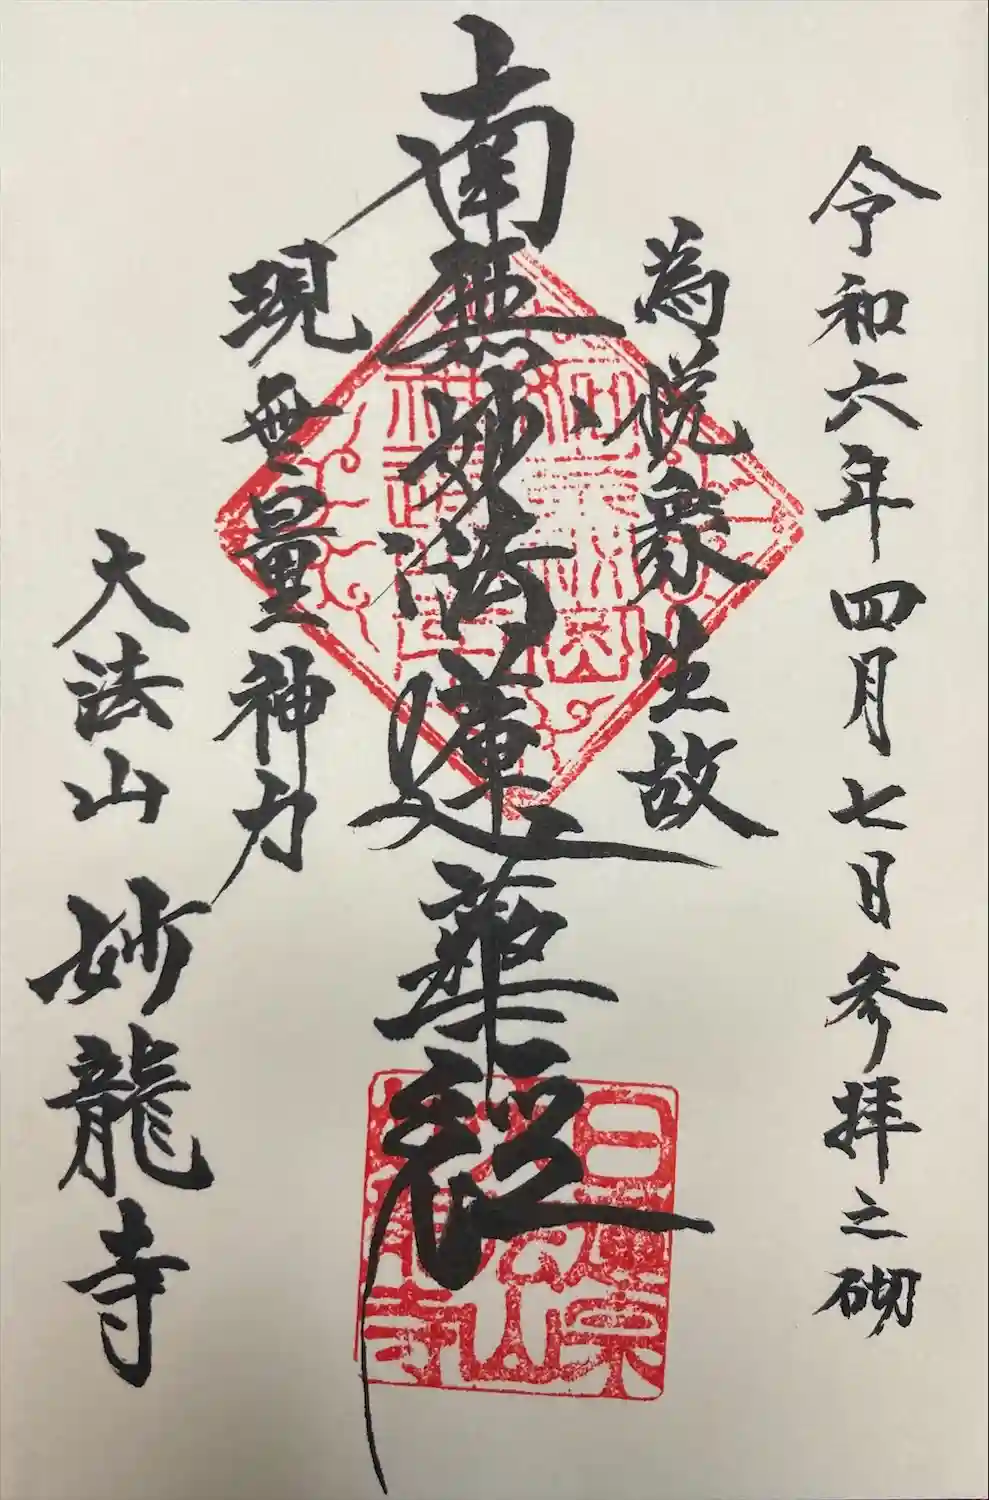 令和六年四月七日参拝之砌
為悦衆生故
南無妙法蓮華経
現無量神力
大法山 妙龍寺
日蓮宗
大法山
妙龍寺